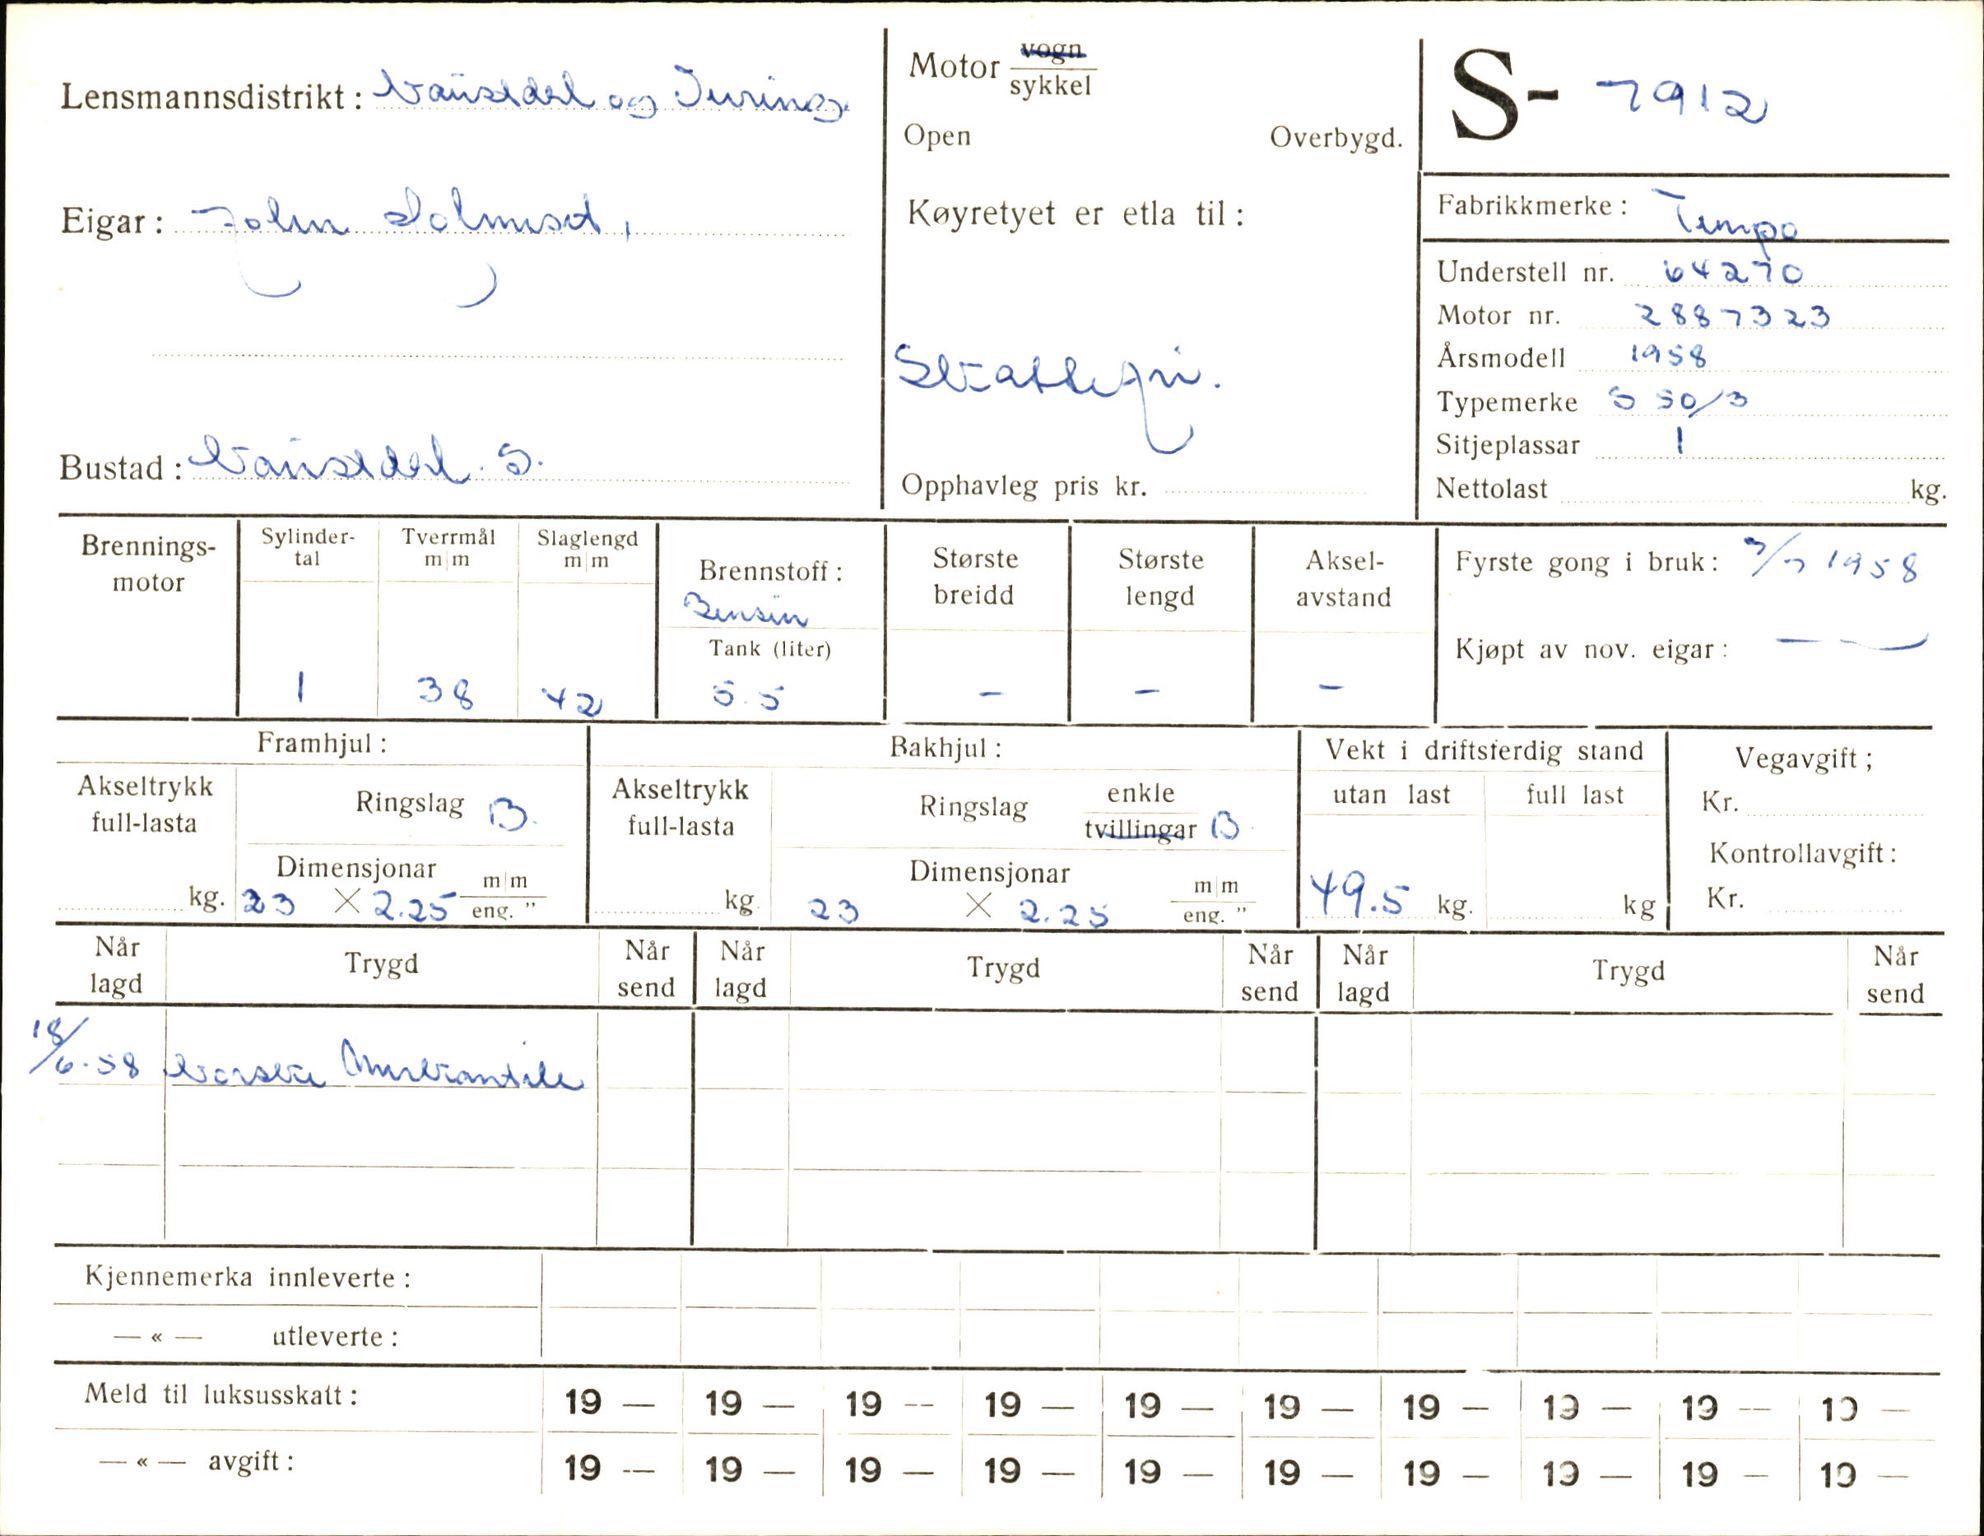 Lensmannsdistrikt: Naustdal og Jevnog.
Eigar: John Solmset,
Bustad: Naustdal. S.
Motor vogn
sykkel
Open Overbygd.
Køyretyet er etla til:
Skattefri.
Opphavleg pris kr.
S- 7912
Fabrikkmerke: Tempo
Understell nr. 64270
Motor nr. 2887323
Årsmodell 1958
Typemerke S 50/3
Sitjeplassar 1
Nettolast kg.
Brennings-
motor
Sylinder-
tal
1
Tverrmål
m|m
38
Slaglengd
m|m
42
Brennstoff:
Bensin
Tank (liter)
5.5
Største
breidd
–
Største
lengd
–
Aksel-
avstand
–
Fyrste gong i bruk: 7/7 1958
Kjøpt av nov. eigar: — —
Framhjul:
Akseltrykk
full-lasta
kg.
Ringslag B.
Dimensjonar
23 × 2.25 m|m
eng. "
Bakhjul:
Akseltrykk
full-lasta
kg
Ringslag enkle
tvillingar B
Dimensjonar
23 × 2.25 m|m
eng. "
Vekt i driftsferdig stand
utan last full last
49.5 kg. kg
Vegavgift;
Kr.
Kontrollavgift:
Kr.
Når
lagd Trygd Når
send Når
lagd Trygd Når
send Når
lagd Trygd Når
send
18/6.58 Norske Merkantile
Kjennemerka innleverte:
— « — utleverte:
Meld til luksusskatt: 19 — 19 — 19 — 19 — 19 — 19 — 19 — 19 — 19 — 19 —
— « — avgift: 19 — 19 — 19 — 19 — 19 — 19 — 19 — 19 — 19 — 19 —